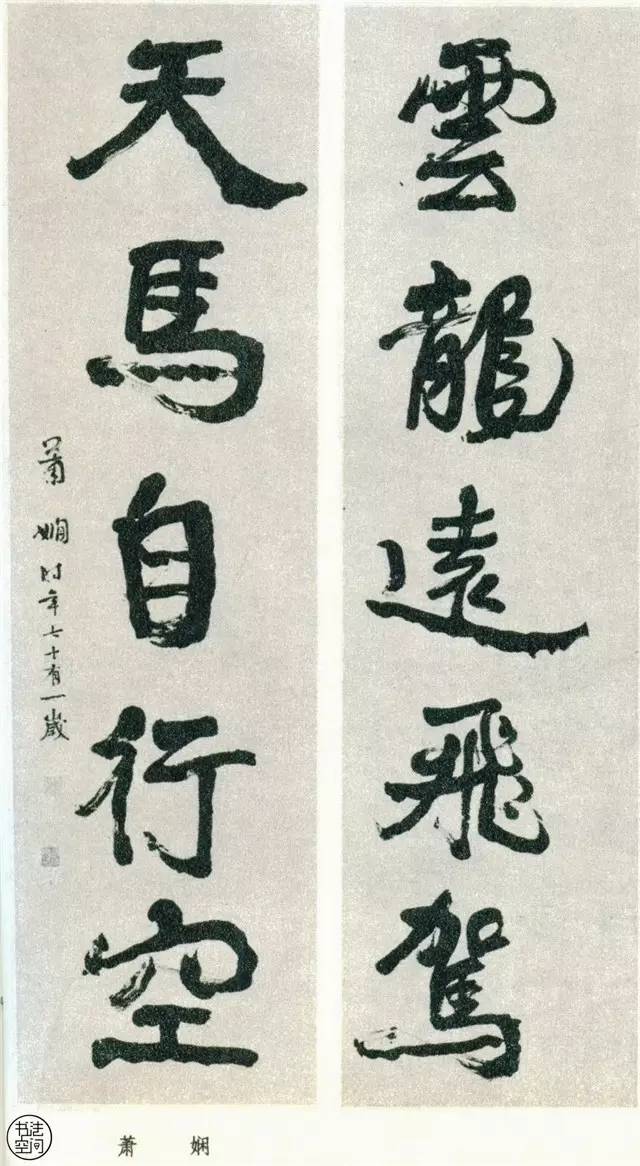 雲龍遠飛駕
天馬自行空
蕭嫻時年七十有一歲
萧 娴
书法
空间